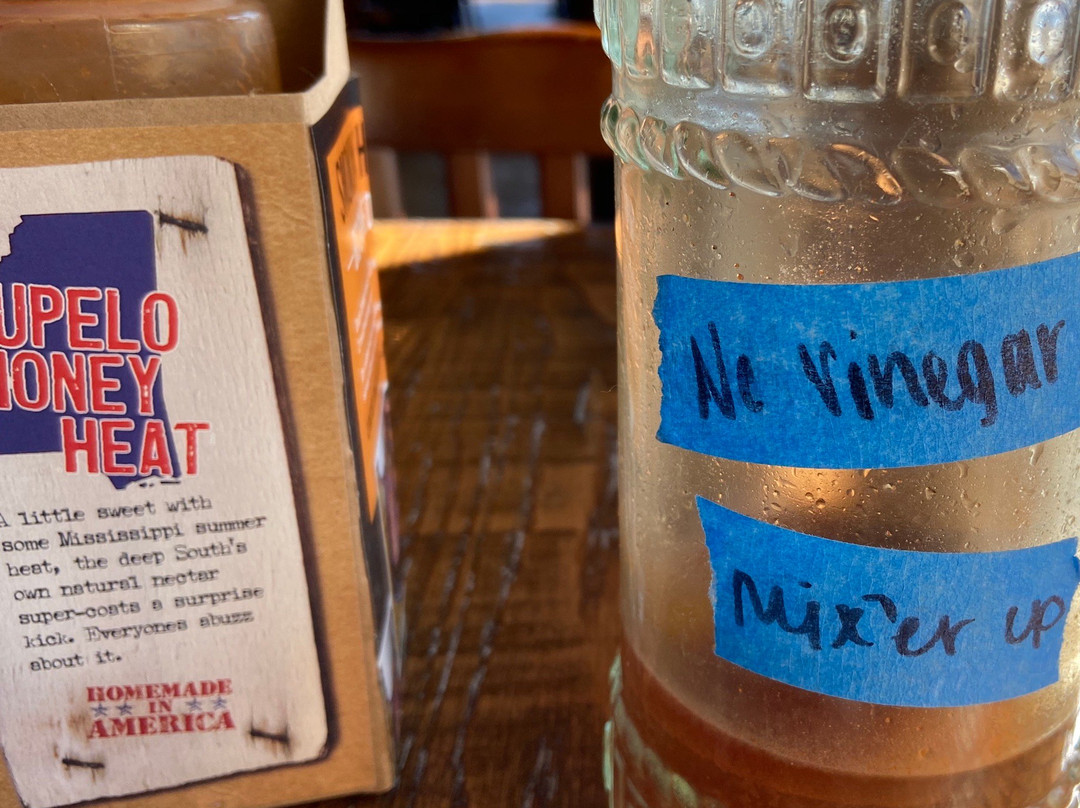 UPELO
HONEY
HEAT
A little sweet with
some Mississippi summer
heat, the deep South's
own natural nectar
super-coats a surprise
kick. Everyones abuzz
about it.
HOMEMADE
IN
AMERICA
Nc Vinegar
Mix'er up